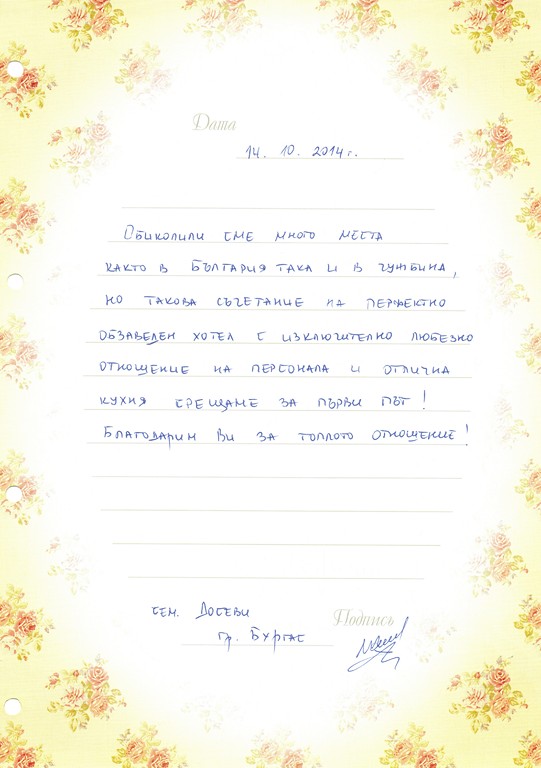 Дата
14. 10. 2014 г.
Обиколили сме много места
както в България така и в чужбина,
но такова съчетание на перфектно
обзаведен хотел с изключително любезно
отношение на персонала и отлична
кухня срещаме за първи път!
Благодарим Ви за топлото отношение!
сем. Досеви
Подпись
гр. Бургас